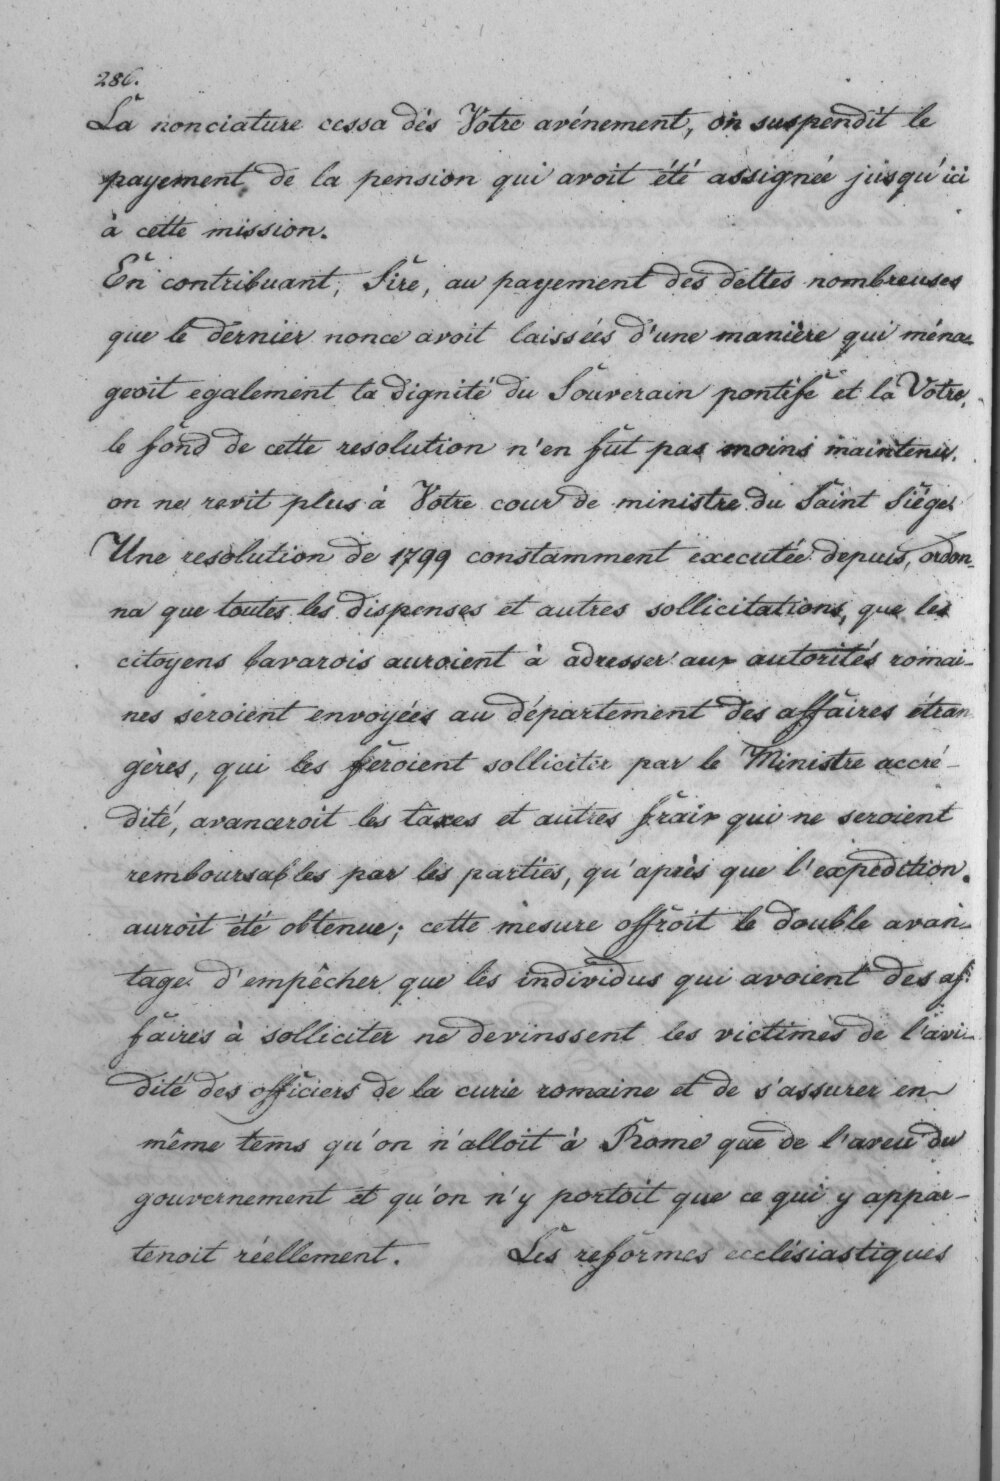 286.
La nonciature cessa dés Votre avénement, on suspendit le
payement de la pension qui avoit été assignée jusqu'ici
à cette mission.
En contribuant, Sire, au payement des dettes nombreuses
que le dernier nonce avoit laissées d'une manière qui ména-
geoit egalement la dignité du Souverain pontife et la Votre,
le fond de cette resolution n'en fut pas moins maintenu.
on ne revit plus à Votre cour de ministre du Saint Siège
Une resolution de 1799 constamment executée depuis, ordon-
na que toutes les dispenses et autres sollicitations, que les
citoyens bavarois auroient à adresser aux autorités romai-
nes seroient envoyées au département des affaires étran
gères, qui les feroient solliciter par le Ministre accré-
dité, avanceroit les taxes et autres fraix qui ne seroient
remboursables par les parties, qu'après que l'expedition
auroit été obtenue; cette mesure offroit le double avan-
tage d'empêcher que les individus qui avoient des af-
faires à solliciter ne devinssent les victimes de l'avi-
dité des officiers de la curie romaine et de s'assurer en
même tems qu'on n'alloit à Rome que de l'aveu du
gouvernement et qu'on n'y portoit que ce qui y appar-
tenoit réellement. Les reformes ecclésiastiques